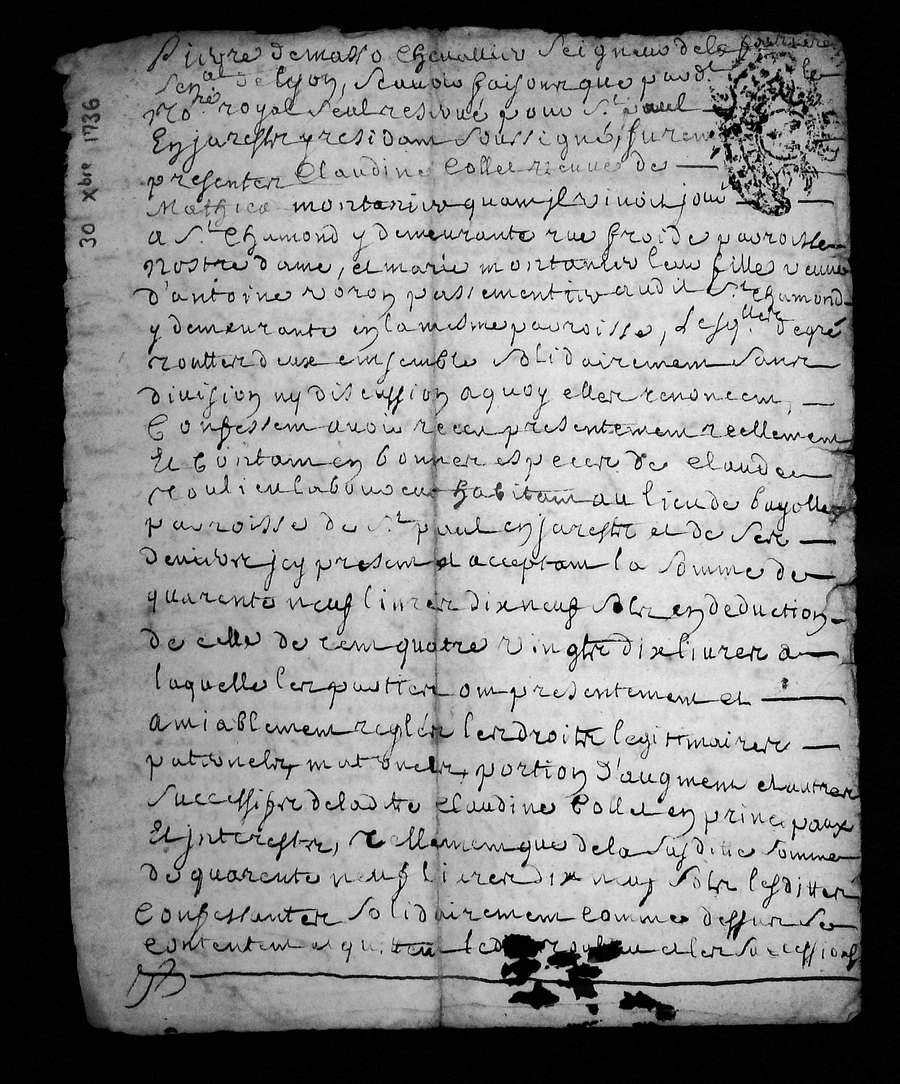 30 xbre 1736
Pierre demasso Chevallier Seigneur dela
Sen.al de lyon, Scavoir faisons que pard.t le
No.re royal Seul reservé pour S.t paul
En jarestz y residant Soussigné, furent
presentes Claudine Collet veuve de
Mathieu montanier quant jl vivoit
a S.t Chamond y demeurante rue froide parroisse
Nostre dame, et marie montanier leur fille veuve
d'antoine voron passementier audit S.t Chamond
y demeurante en la mesme parroisse, Lesq.lles de gré
touttes deux ensemble Solidairement Sans
division ny discussion a quoy elles renoncent,
Confessent avoir receu presentement reellement
Et Contant en bonnes especes de Claude
laboureur habitant au lieu de
parroisse de S.t paul en jarestz et de Ses
deniers jcy present et acceptant la Somme de
quarente neuf livres dix neuf Sols en deduction
de celle de cent quatre vingts dix livres a
laquelle les parties ont presentement et
amiablement reglés les droits legitimaires
paternels, maternels, portion D'augment et autres
Successifs de laditte Claudine Collet en principaux
Et jnterests, Tellement que de la Susditte Somme
de quarente neuf livres dix neuf Sols lesdittes
Confessantes Solidairement Comme dessus Se
Contentent et quittent led et les Successions